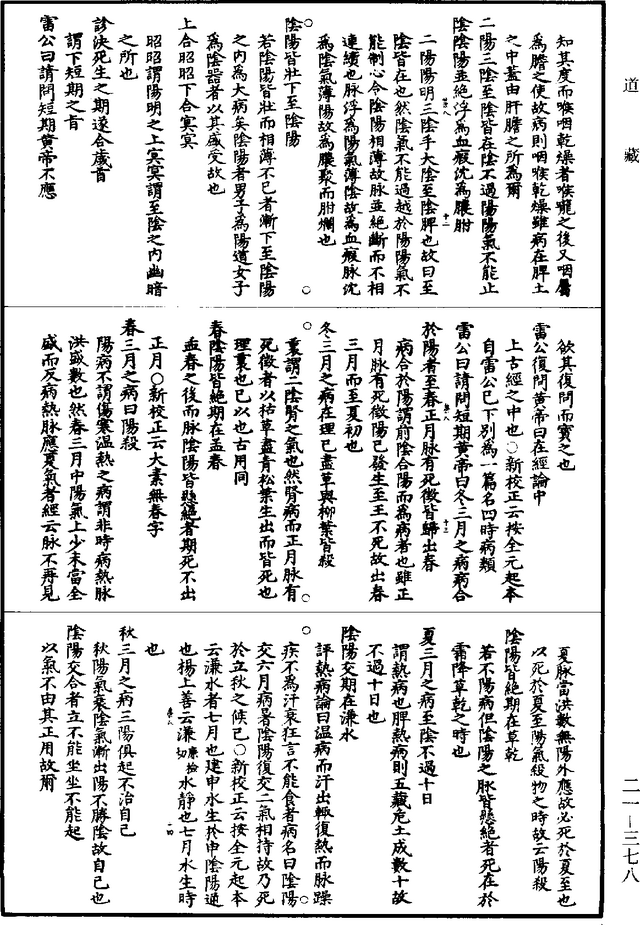 道藏
知其度而喉咽乾燥者喉嚨之後又咽屬
為膽之使故病則咽喉乾燥雖病在脾土
之中蓋由肝膽之所為爾
二陽三陰至陰皆在陰不過陽陽氣不能止
陰陰陽並絕浮為血瘕沈為膿胕
二陽陽明三陰手太陰至陰脾也故曰至
陰皆在也然陰氣不能過越於陽陽氣不
能制心令陰陽相薄故脉並絕斷而不相
連續也脉浮為陽氣薄陰故為血瘕脉沈
為陰氣薄陽故為膿聚而胕爛也
陰陽皆壯下至陰陽
若陰陽皆壯而相薄不已者漸下至陰陽
之內為大病矣陰陽者男子為陽道女子
為陰器者以其盛受故也
上合昭昭下合冥冥
昭昭謂陽明之上冥冥謂至陰之內幽暗
之所也
診決死生之期遂合歲首
謂下短期之旨
雷公曰請問短期黃帝不應
欲其復問而寶之也
雷公復問黃帝曰在經論中
上古經之中也○新校正云按全元起本
自雷公已下別為一篇名四時病類
雷公曰請問短期黃帝曰冬三月之病病合
於陽者至春正月脉有死徵皆歸出春
病合於陽謂前陰合陽而為病者也雖正
月脉有死徵陽已發生至王不死故出春
三月而至夏初也
冬三月之病在理已盡草與柳葉皆殺
裏謂二陰腎之氣也然腎病而正月脉有
死徵者以枯草盡青松葉生出而皆死也
理裏也已以也古用同
春陰陽皆絕期在孟春
孟春之後而脉陰陽皆懸絕者期死不出
正月○新校正云太素無春字
春三月之病曰陽殺
陽病不謂傷寒溫熱之病謂非時病熱脉
洪盛數也然春三月中陽氣上少未當全
盛而反病熱脉應夏氣者經云脉不再見
夏脉當洪數無陽外應故必死於夏至也
以死於夏至陽氣殺物之時故云陽殺
陰陽皆絕期在草乾
若不陽病但陰陽之脉皆懸絕者死在於
霜降草乾之時也
夏三月之病至陰不過十日
謂熱病也脾熱病則五藏危土成數十故
不過十日也
陰陽交期在溓水
評熱病論曰溫病而汗出輒復熱而脉躁
疾不為汗衰狂言不能食者病名曰陰陽
交六月病暑陰陽復交二氣相持故乃死
於立秋之候已○新校正云按全元起本
云溓水者七月也建申水生於申陰陽逆
也楊上善云溓廉檢切水靜也七月水生時
也
秋三月之病三陽俱起不治自已
秋陽氣衰陰氣漸出陽不勝陰故自已也
陰陽交合者立不能坐坐不能起
以氣不由其正用故爾
二一—三七八